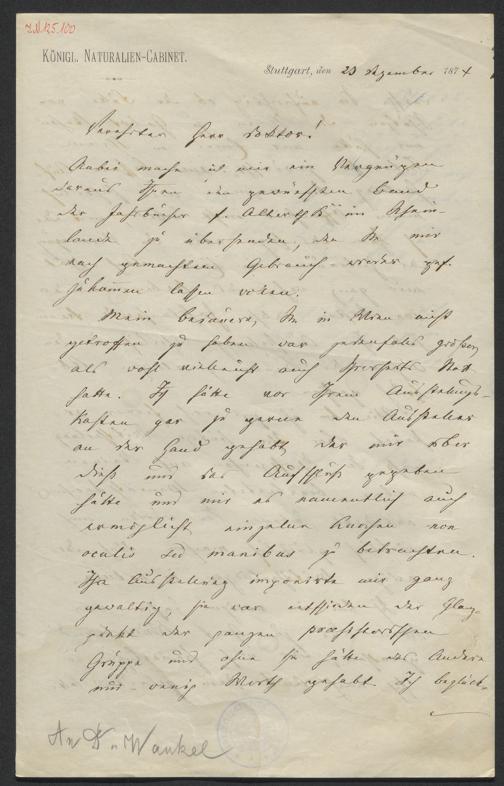 Z.N. 125.100
KÖNIGL. NATURALIEN-CABINET.
Stuttgart, den 23 Dezember 1874
Verehrter Herr Doktor!
Anbei mache ich mir ein Vergnügen
daraus Ihnen den gewünschten Band
der Jahrbücher f. Alterth. im Rhein-
lande zu übersenden, den Sie mir
nach gemachtem Gebrauch wieder gef.
zukommen lassen wollen.
Mein Bedauern, Sie in Wien nicht
getroffen zu haben war jedenfalls größer,
als wohl vielleicht auch Ihrerseits Statt
hatte. Ich hätte vor Ihrem Ausstellungs-
kasten gar zu gerne den Aussteller
an der Hand gehabt der mir über
dieß und das Aufschluß gegeben
hätte und mir es namentlich auch
ermöglicht einzelne Knochen non
oculis sed manibus zu betrachten.
Ihre Ausstellung imponirte mir ganz
gewaltig, sie war entschieden der Glanz-
punkt der ganzen prähistorischen
Gruppe und ohne sie hätte das Andere
nur wenig Werth gehabt. Ich beglück-
An Dr. Wankel